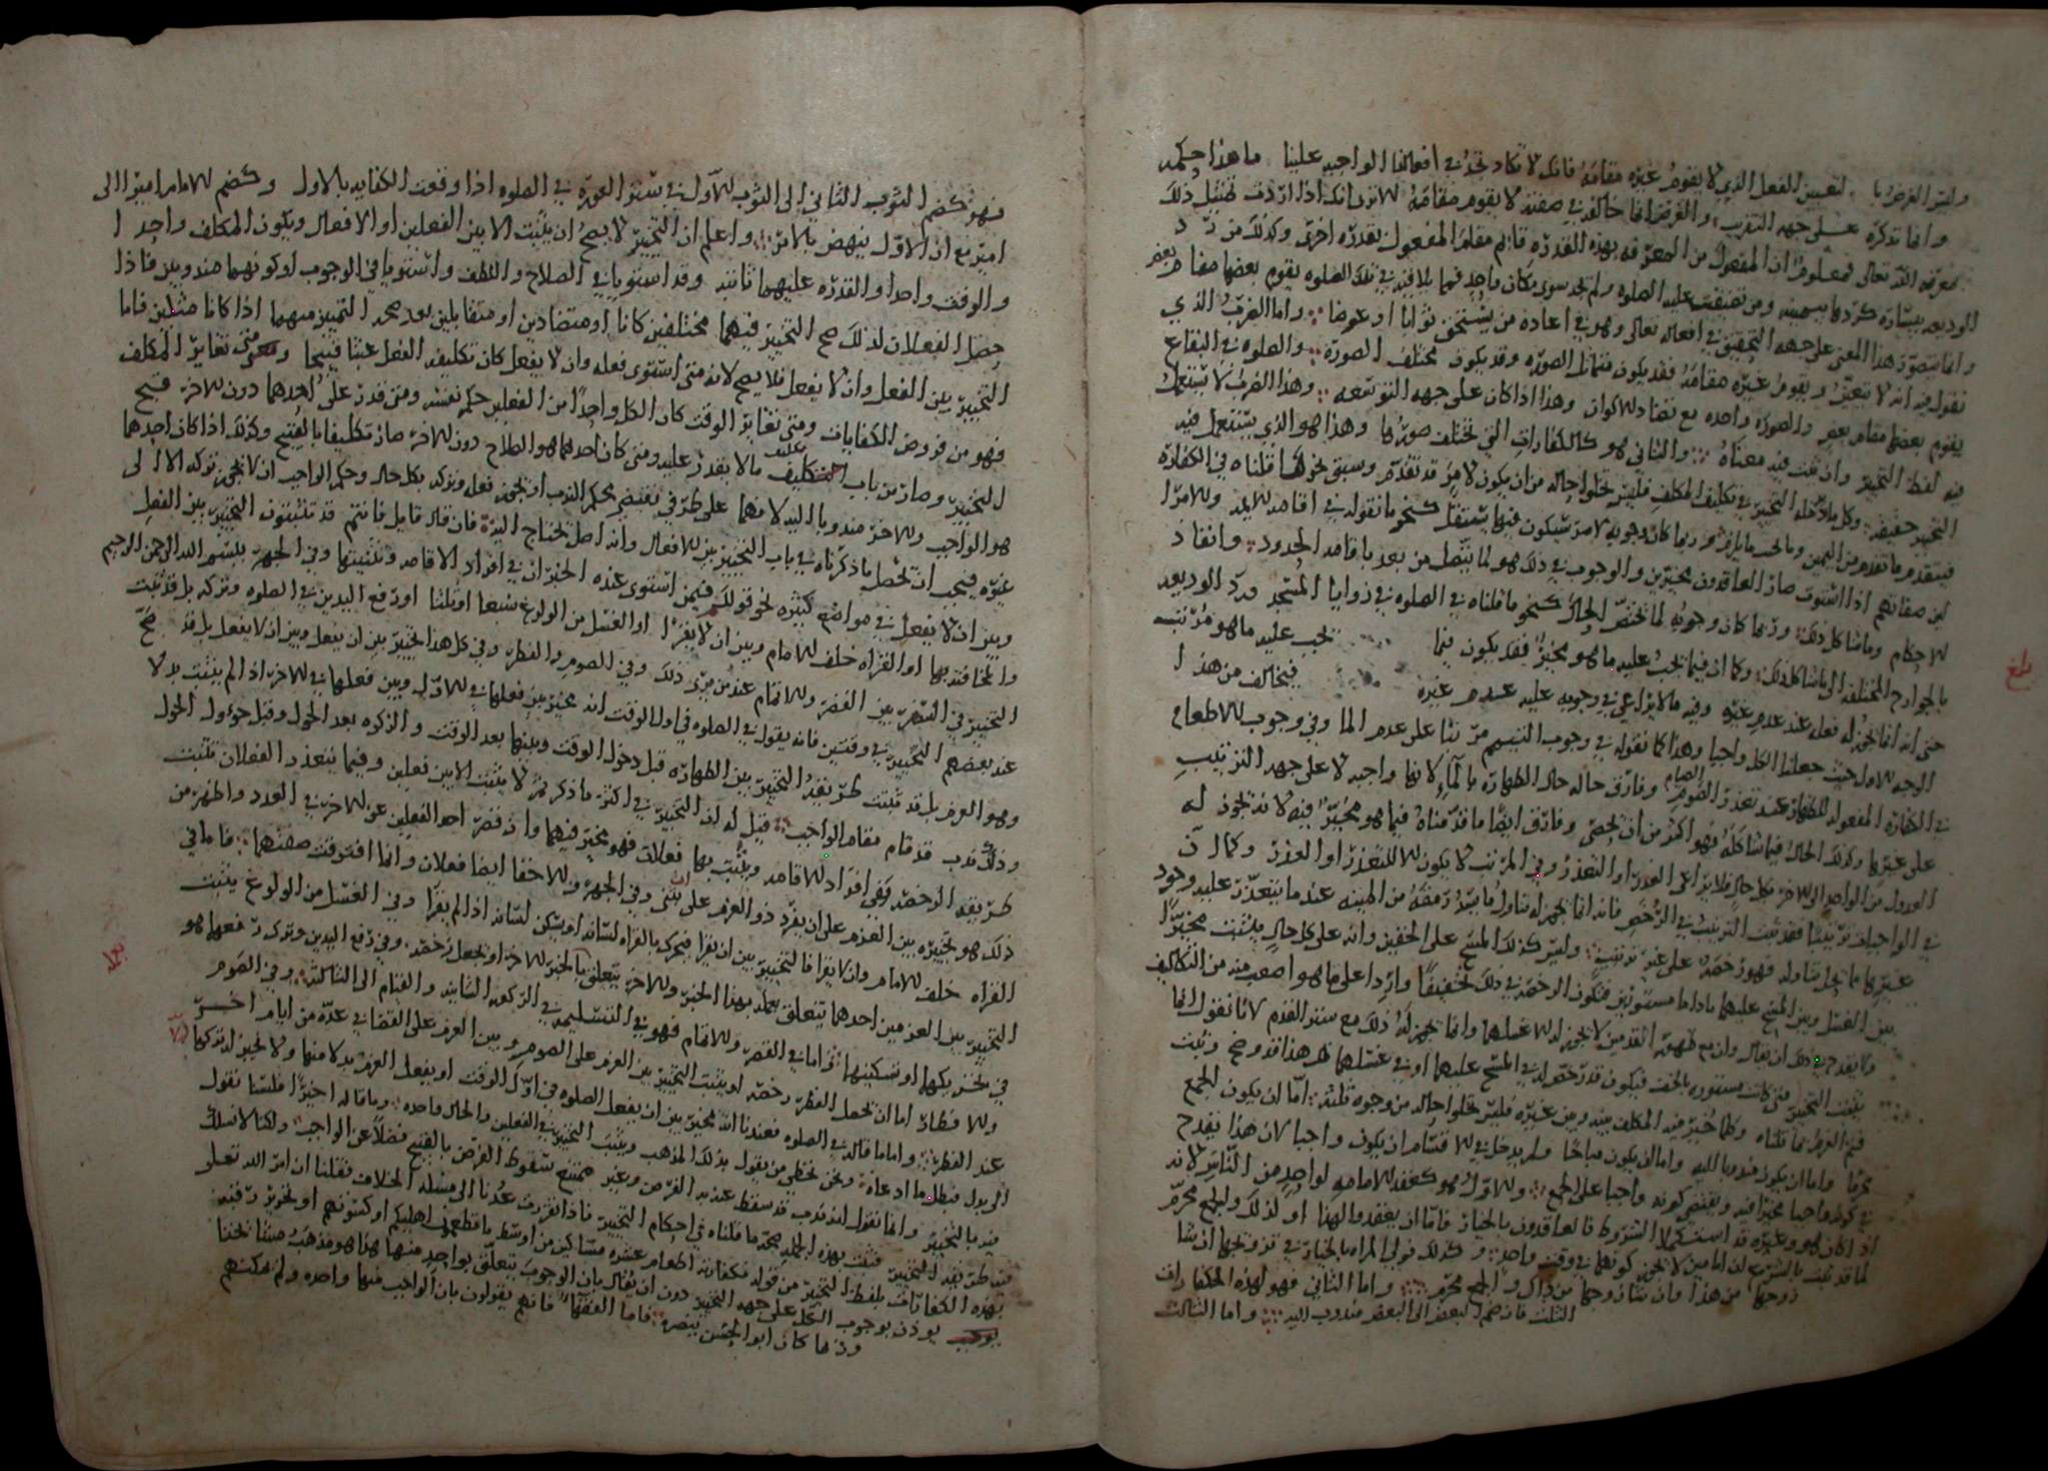 وليس الغرض بالتعيين الفعل الذي لا يقوم غيره مقامه فانك لا تكاد تجد في افعالنا الواجبه علينا ما هذا حكمه
وانما نذكره على جهه التقريب والغرض انما خالف في صفته لا يقوم مقامه الا ترى انك اذا اردت تمثيل ذلك
بمعرفه الله تعالى فمعلوم ان المفعول من المعرفه بهذه القدره قائم مقام المفعول بقدره اخرى وكذلك من رد
الوديعه بيساره كردها بيمينه ومن تضيقت عليه الصلوه ولم يجد سوى مكان واحد فيما يلاقيه في تلك الصلوه يقوم بعضها مقام بعض
وانما يتصور هذا المعنى على جهه التحقيق في افعاله تعالى وهو في اعاده من يستحق ثوابا او عوضا واما الضرب الذي
نقول فيه انه لا يتعين ويقوم غيره مقامه فقد يكون متماثل الصوره وقد يكون مختلف الصوره والصلوه في البقاع
يقوم بعضها مقام بعض والصوره واحده مع تضاد الاكوان وهذا اذا كان على جهه التوسعه وهذا الضرب لا يستعمل
فيه لفظ التخيير وان ثبت فيه معناه والثاني هو كالكفارات التي تختلف صورها وهذا هو الذي يستعمل فيه
التخيير حقيقه وكل ما دخله التخيير في تكليف المكلف فليس يخلوا حاله من ان يكون لامر قد تقدم وسبق نحو ما قلناه في الكفاره
فيتقدم ما تقدم من اليمين وربما كان وجوبه لامر سيكون فيما يستقبل كنحو ما نقوله في اقامه الامراء
لمن صفاتهم اذا استوت صار العاقدون مخيرين والوجوب في ذلك هو لما يتصل من بعد باقامه الحدود وانفاذ
الاحكام وما شاكل ذلك وربما كان وجوبه لما يختص الحال كنحو ما قلناه في الصلوه في زوايا المسجد ورد الوديعه
بالجوارح المختلفه الى ما شاكل ذلك وكما ان فيما يجب عليه ما هو مخير فقد يكون فيما يجب عليه ما هو مرتب
حتى انه انما يجوز له فعله عند عدم غيره وفيه ما لا يراعى في وجوبه عليه عدم غيره فيخالف من هذا
الوجه الاول حيث جعلنا الكل واجبا وهذا كما نقوله في وجوب التيمم مرتبا على عدم الما وفي وجوب الاطعام
في الكفاره المفعوله للظهار عند تعذر الصيام وفارق حاله حال الطهاره بالما لانها واجبه لا على جهه الترتيب
على غيرها وكذلك الحال فيما شاكله فهو اكثر من ان يحصى وفارق ايضا ما قدمناه فيما هو مخير فيه لانه يجوز له
العدول من الواحد الى الاخر بكل حال فلا يراعى العذر او التعذر وفي المرتب لا يكون الا للتعذر او العذر وكما ان
في الواجبات ترتيبا فقد ثبت الترتيب في الرخص فانه انما يجوز له تناول ما يسد رمقه من الميته عند ما يتعذر عليه وجود
غيرها مما يحل تناوله فهو رخصه على غير ترتيب وليس كذلك المسح على الخفين وانه على كل حال يثبت مخيرا
بين الغسل وبين المسح عليهما ما داما مستورتين فتكون الرخصه في ذلك تخفيفا واردا على ما هو اصعب منه من التكاليف
ولا يقدح في ذلك ان يقال وان مع ظهور القدمين لا يجوز له الا غسلهما وانما يجوز له ذلك مع ستر القدم لانا نقول انما
يثبت التخيير متى كانت مستوره بالخف فيكون قد رخص له في المسح عليهما او في غسلهما فهذا قد وضح وثبت
فيه الغرض بما قلناه وكلما خير فيه المكلف بينه وبين غيره فليس يخلوا حاله من وجوه ثلثه اما ان يكون الجمع
محرما واما ان يكون مندوبا اليه واما ان يكون مباحا ولم يدخل في الاقسام ان يكون واجبا لان هذا يقدح
في كونه واجبا مخيرا فيه ويقتضي كونه واجبا على الجمع والاول هو كعقد الامامه لواحد من الناس لانه
اذا كان هو وغيره قد استكملا الشروط فالعاقدون بالخيار فاما ان يعقدوا لهذا او لذلك والجمع محرم
لما قد ثبت بالشرع ان امامين لا يجوز كونهما في وقت واحد وكذلك فولي المراه بالخيار في تزويجها ان شا
زوجها من هذا وان شا زوجها من ذاك والجمع محرم واما الثاني فهو لهذه الكفارات
الثلث فان ضم البعض الى البعض مندوب اليه واما الثالث
بلغ
فهو كضم الثوب الثاني الى الثوب الاول في ستر العوره في الصلوه اذا وقعت الكفايه بالاول وكضم الامام اميرا الى
امير مع ان الاول ينهض بالامر واعلم ان التخيير لا يصح ان يثبت الا بين الفعلين او الافعال ويكون المكلف واحدا
والوقت واحدا والقدره عليهما ثابته وقد استويا في الصلاح واللطف واستويا في الوجوب او كونهما مندوبين فاذا
حصل الفعلان لذلك صح التخيير فيهما مختلفين كانا او متضادين او متقابلين بعد صحه التمييز منهما اذا كانا مثلين فاما
التخيير بين الفعل وان لا يفعل فلا يصح لانه متى استوى فعله وان لا يفعل كان تكليف الفعل عبثا قبيحا ومتى تغاير المكلف
فهو من فروض الكفايات ومتى تغاير الوقت كان لكل واحد من الفعلين حكم نفسه ومتى قدر على احدهما دون الاخر قبح
التخيير وصار من باب تكليف ما لا يقدر عليه ومتى كان احدهما هو الصلاح دون الاخر صار تكليفا بالقبيح وكذلك اذا كان احدهما
هو الواجب والاخر مندوبا اليه لانهما على طرفي نقيض بحكم الندب ان يجوز فعله وتركه بكل حال وحكم الواجب ان لا يجوز تركه الا الى
غيره فيجب ان يحصل ما ذكرناه في باب التخيير بين الافعال وانه اصل يحتاج اليه فان قال قايل فانتم قد تثبتون التخيير بين الفعل
وبين ان لا يفعل في مواضع كثيره نحو قولكم فيمن استوى عنده الخبران في افراد الاقامه وتثنيتها وفي الجهر ببسم الله الرحمن الرحيم
والمخافته بها او القراه خلف الامام وبين ان لا يقرا او الغسل من الولوغ سبعا او ثلثا او رفع اليدين في الصلوه وتركه بل قد ثبت
التخيير في السفر بين القصر والاتمام عند من يرى ذلك وفي الصوم والفطر وفي كل هذا التخيير بين ان يفعل وبين ان لا يفعل بل قد صح
عند بعضهم التخيير في وقتين فانه يقول في الصلوه في اول الوقت انه مخير بين فعلها في الاول وبين فعلها في الاخر اذا لم يثبت بدلا
وهو العزم بل قد ثبتت طريقه التخيير بين الطهاره قبل دخول الوقت وبينها بعد الوقت والزكوه بعد الحول وقبل حوول الحول
وذلك ندب قد قام مقام الواجب قيل له ان التخيير في اكثر ما ذكرتم لا يثبت الا بين فعلين وفيما يتعذر الفعلان تثبت
طريقه الرخصه ففي افراد الاقامه ويثبت بها فعلان فهو مخير فيهما وان قصر احد الفعلين عن الاخر في العدد واظهر من
ذلك هو تخييره بين العزم على ان يفرد او العزم على ان يثني وفي الجهر والاخفا ايضا فعلان وانما افترقت صفتهما فاما في
القراه خلف الامام وان لا يقرا فالتخيير بين ان يقرا فيحرك بالقراه لسانه او يسكن لسانه اذا لم يقرا وفي الغسل من الولوغ يثبت
التخيير بين العزمين احدهما يتعلق بعمله بهذا الخبر والاخر يتعلق بالخبر الاخر او يجعل رخصه وفي رفع اليدين وترك رفعهما هو
في تحريكها او تسكينها فاما في القصر والاتمام فهو في التسليم في الركعه الثانيه والقيام الى الثالثه وفي الصوم
والافطار اما ان يجعل الفطر رخصه او يثبت التخيير بين العزم على الصوم وبين العزم على القضا في عده من ايام اخر
عند الفطر واما ما قاله في الصلوه فعندنا انه مخير بين ان يفعل الصلوه في اول الوقت او يفعل العزم بدلا منها ولا يجوز له تركها
الى بدل فبطل ما ادعاه ونحن نخطي من يقول بذلك المذهب ويثبت التخيير في الفعلين والحال واحده وما قاله اخيرا فلسنا نقول
فيه بالتخيير وانما نقول انه ندب قد سقط عنه به الفرض وغير ممتنع سقوط الفرض بالقبيح فضلا عن الواجب ولكنا لا نسلك
فيه طريقه التخيير فثبت بهذه الجمله صحه ما قلناه في احكام التخيير فاذا تقررت عدنا الى مسله الخلاف فقلنا ان امر الله تعالى
بهذه الكفارات بلفظ التخيير من قوله فكفارته اطعام عشره مساكين من اوسط ما تطعمون اهليكم او كسوتهم او تحرير رقبه
يوذن بوجوب الكل على جهه التخيير دون ان يقال بان الوجوب يتعلق بواحد منها هذا هو مذهب شيخنا
وربما كان ابو الحسن ينصره فاما الفقها فانهم يقولون بان الواجب منها واحده ولم يمكنهم